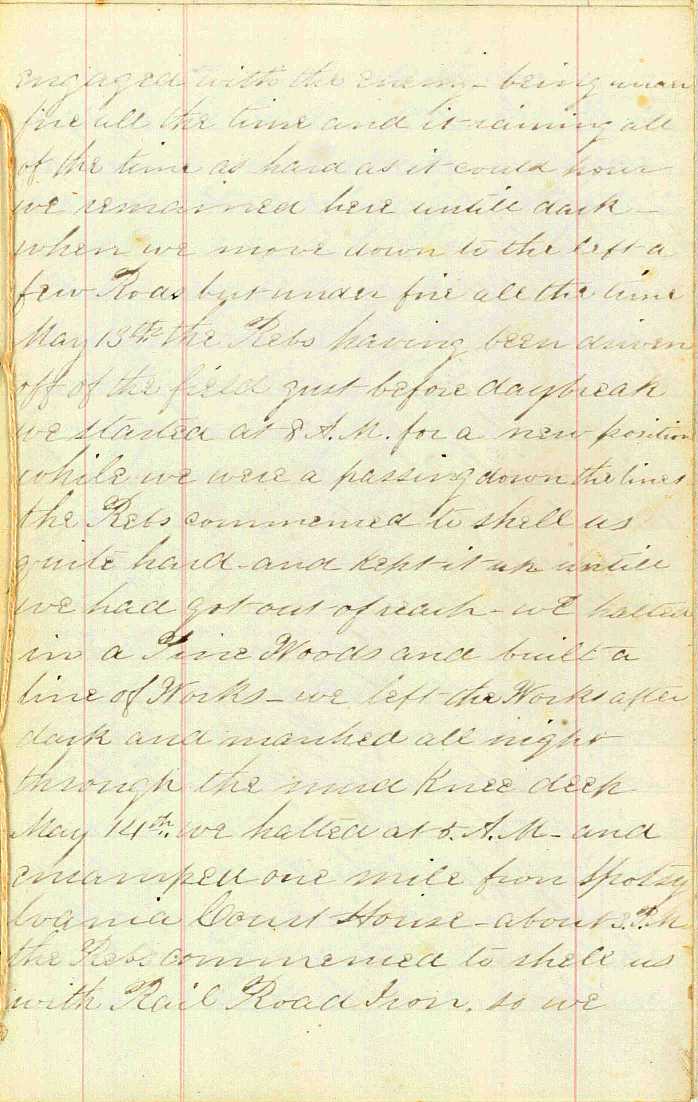 engaged with the enemy - being under
fire all the time and it raining all
of the time as hard as it could pour
we remained here untill dark -
when we move down to the left a
few Rods but under fire all the time
May 13th the Rebs having been driven
off of the field just before daybreak
we started at 8 A.M. for a new position
while we were a passing down the lines
the Rebs commenced to shell us
quite hard - and kept it up untill
we had got out of reach - we halted
in a Pine Woods and built a
line of Works - we left the Works after
dark and marched all night
through the mud Knee deep
May 14th. we halted at 8. A.M - and
encamped one mile from Spotsy
lvania Court House - about 3. P.M
the Rebs commenced to shell us
with Rail Road Iron. so we